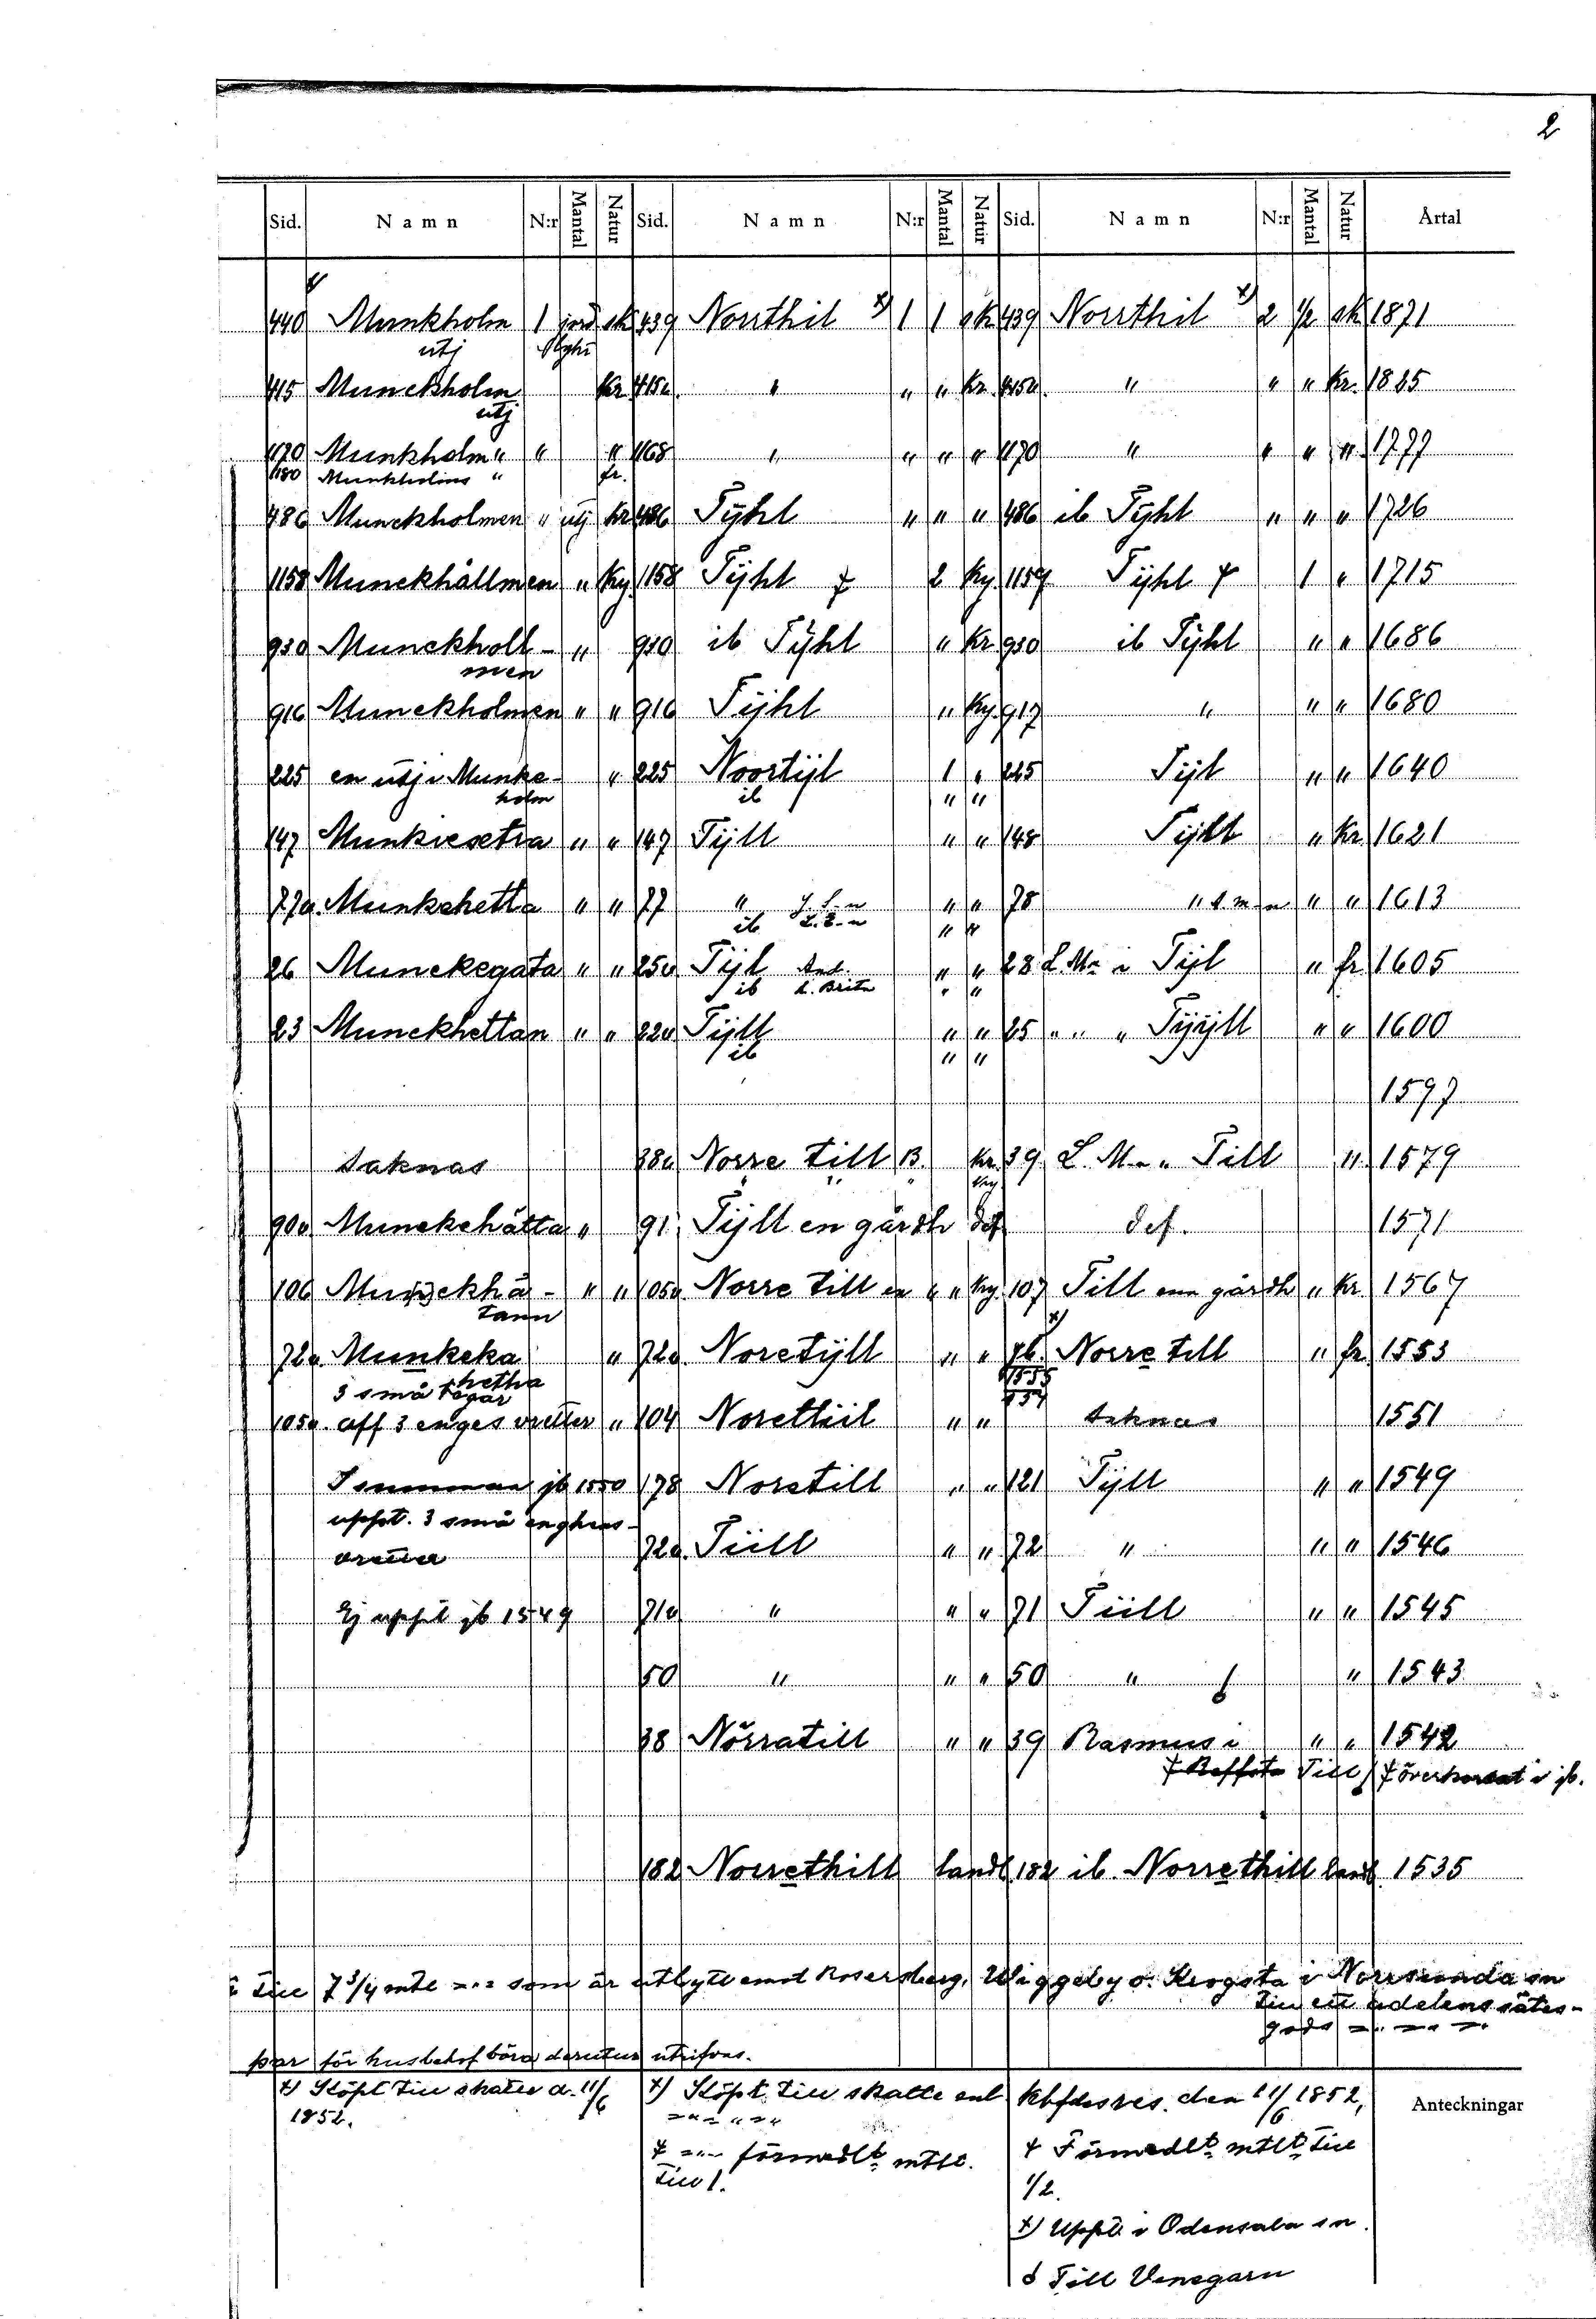 2
Sid. Namn N:r Mantal Natur Sid. Namn N:r Mantal Natur Sid. Namn N:r Mantal Natur Årtal
440 Munkholm 1 jord sk 439 Norrthil x) 1 1 sk 439 Norrthil x) 2 1/2 sk 1871
utj lght
415 Munckholm kr 415a " " " Kr. 415a " " " Kr. 1825
utj
1170 Munkholm " " " 1168 " " " " 1170 " " " " 1777
1180 Munkholms " fr.
486 Munckholmen " utj kr 486 Tÿhl " " " 486 ib Tÿhl " " " 1726
1158 Munckhållmen " Ky 1158 Tÿhl ⨍ 2 Ky. 1159 Tÿhl ⨍ 1 " 1715
930 Munckholl- " 930 ib Tÿhl " Kr. 930 ib Tÿhl " " 1686
men
916 Munckholmen " " 916 Tijhl " Ky. 917 " " " 1680
225 en utj i Munke- " 225 Noortijl 1 " 225 Tijl " " 1640
holm ib " "
147 Munkiesetra " " 147 Tijll " " 148 Tijll " Kr 1621
77a. Munkehetta " " 77 " " " 78 " " " 1613
ib " "
26 Munckegata " " 25a Tijl And. " " 28 L. M. i Tijl " fr 1605
ib h. Brita " "
23 Munckhettan " " 22a Tijll " " 25 " " " Tijÿll " " 1600
ib " "
1597
saknas 38a Norre till B. kr. 39 L. M. " Till " 1579
" " " Kry
90a Munckehätta " 91 Tijll en gårdh def def. 1571
106 Munckhä- " " 105a Norre till en " " Ky. 107 Till enn gårdh " Kr. 1567
tann x)
72a. Munkeka " 72a Noretÿll " " 76. Norre till " fr. 1553
hetha 1555
3 små tegar 1557
105a. aff 3 enges vretter " 104 Norethiil " " saknas 1551
I summan jb 1550 178 Noretill " " 121 Tÿll " " 1549
uppt. 3 små enghes-
vretter 72a. Tiill " " 72 " " " 1546
Ej uppt jb 1549 71a " " " 71 Tiill " " 1545
50 " " " 50 " " 1543
38 Nörratill " " 39 Rasmus i " " 1542
Till ⨍ överkorsat i jb.
182 Norrethill landb 182 ib. Norrethill landb 1535
i Till 7 3/4 mtl =.= som är utbytt emot Rosersberg, Wiggeby o. Krogsta i Norrsunda sn
till ett adelens sätes-
gods =.. =.. =.
par för husbehof böra derutur utrifvas.
x) Köpt till skatte d. 11/6
1852.
x) Köpt till skatte enl kbfdes res. den 11/6 1852,
⨍ =.. förmedlt mtlt.
till 1.
⨍ Förmedlt mtlt till
1/2.
x) Uppt i Odensala sn.
Till Venegarn
Anteckningar